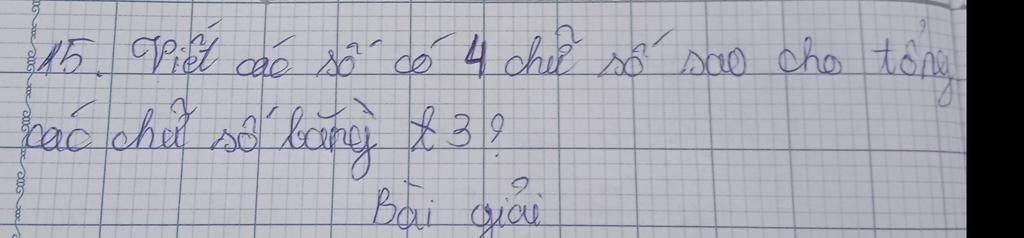 15. Viết các số có 4 chữ số sao cho tổng
các chữ số bằng 3?
Bài giải